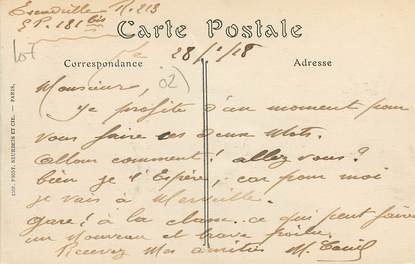 Escadrille N. 213
S P. 181 bis
107
Carte Postale
28/2/18
Correspondance
Adresse
02
Monsieur,
Je profite d'un moment pour
vous faire ces deux mots.
Allons comment! allez vous?
bien je l'Espère, car pour moi
je vais à Merveille.
gare! à la classe.. ce qui peut faire
un nouveau et brave poilu.
Recevez Mes amitiés M.
PHOT. NEURDEIN ET CIE. — PARIS.